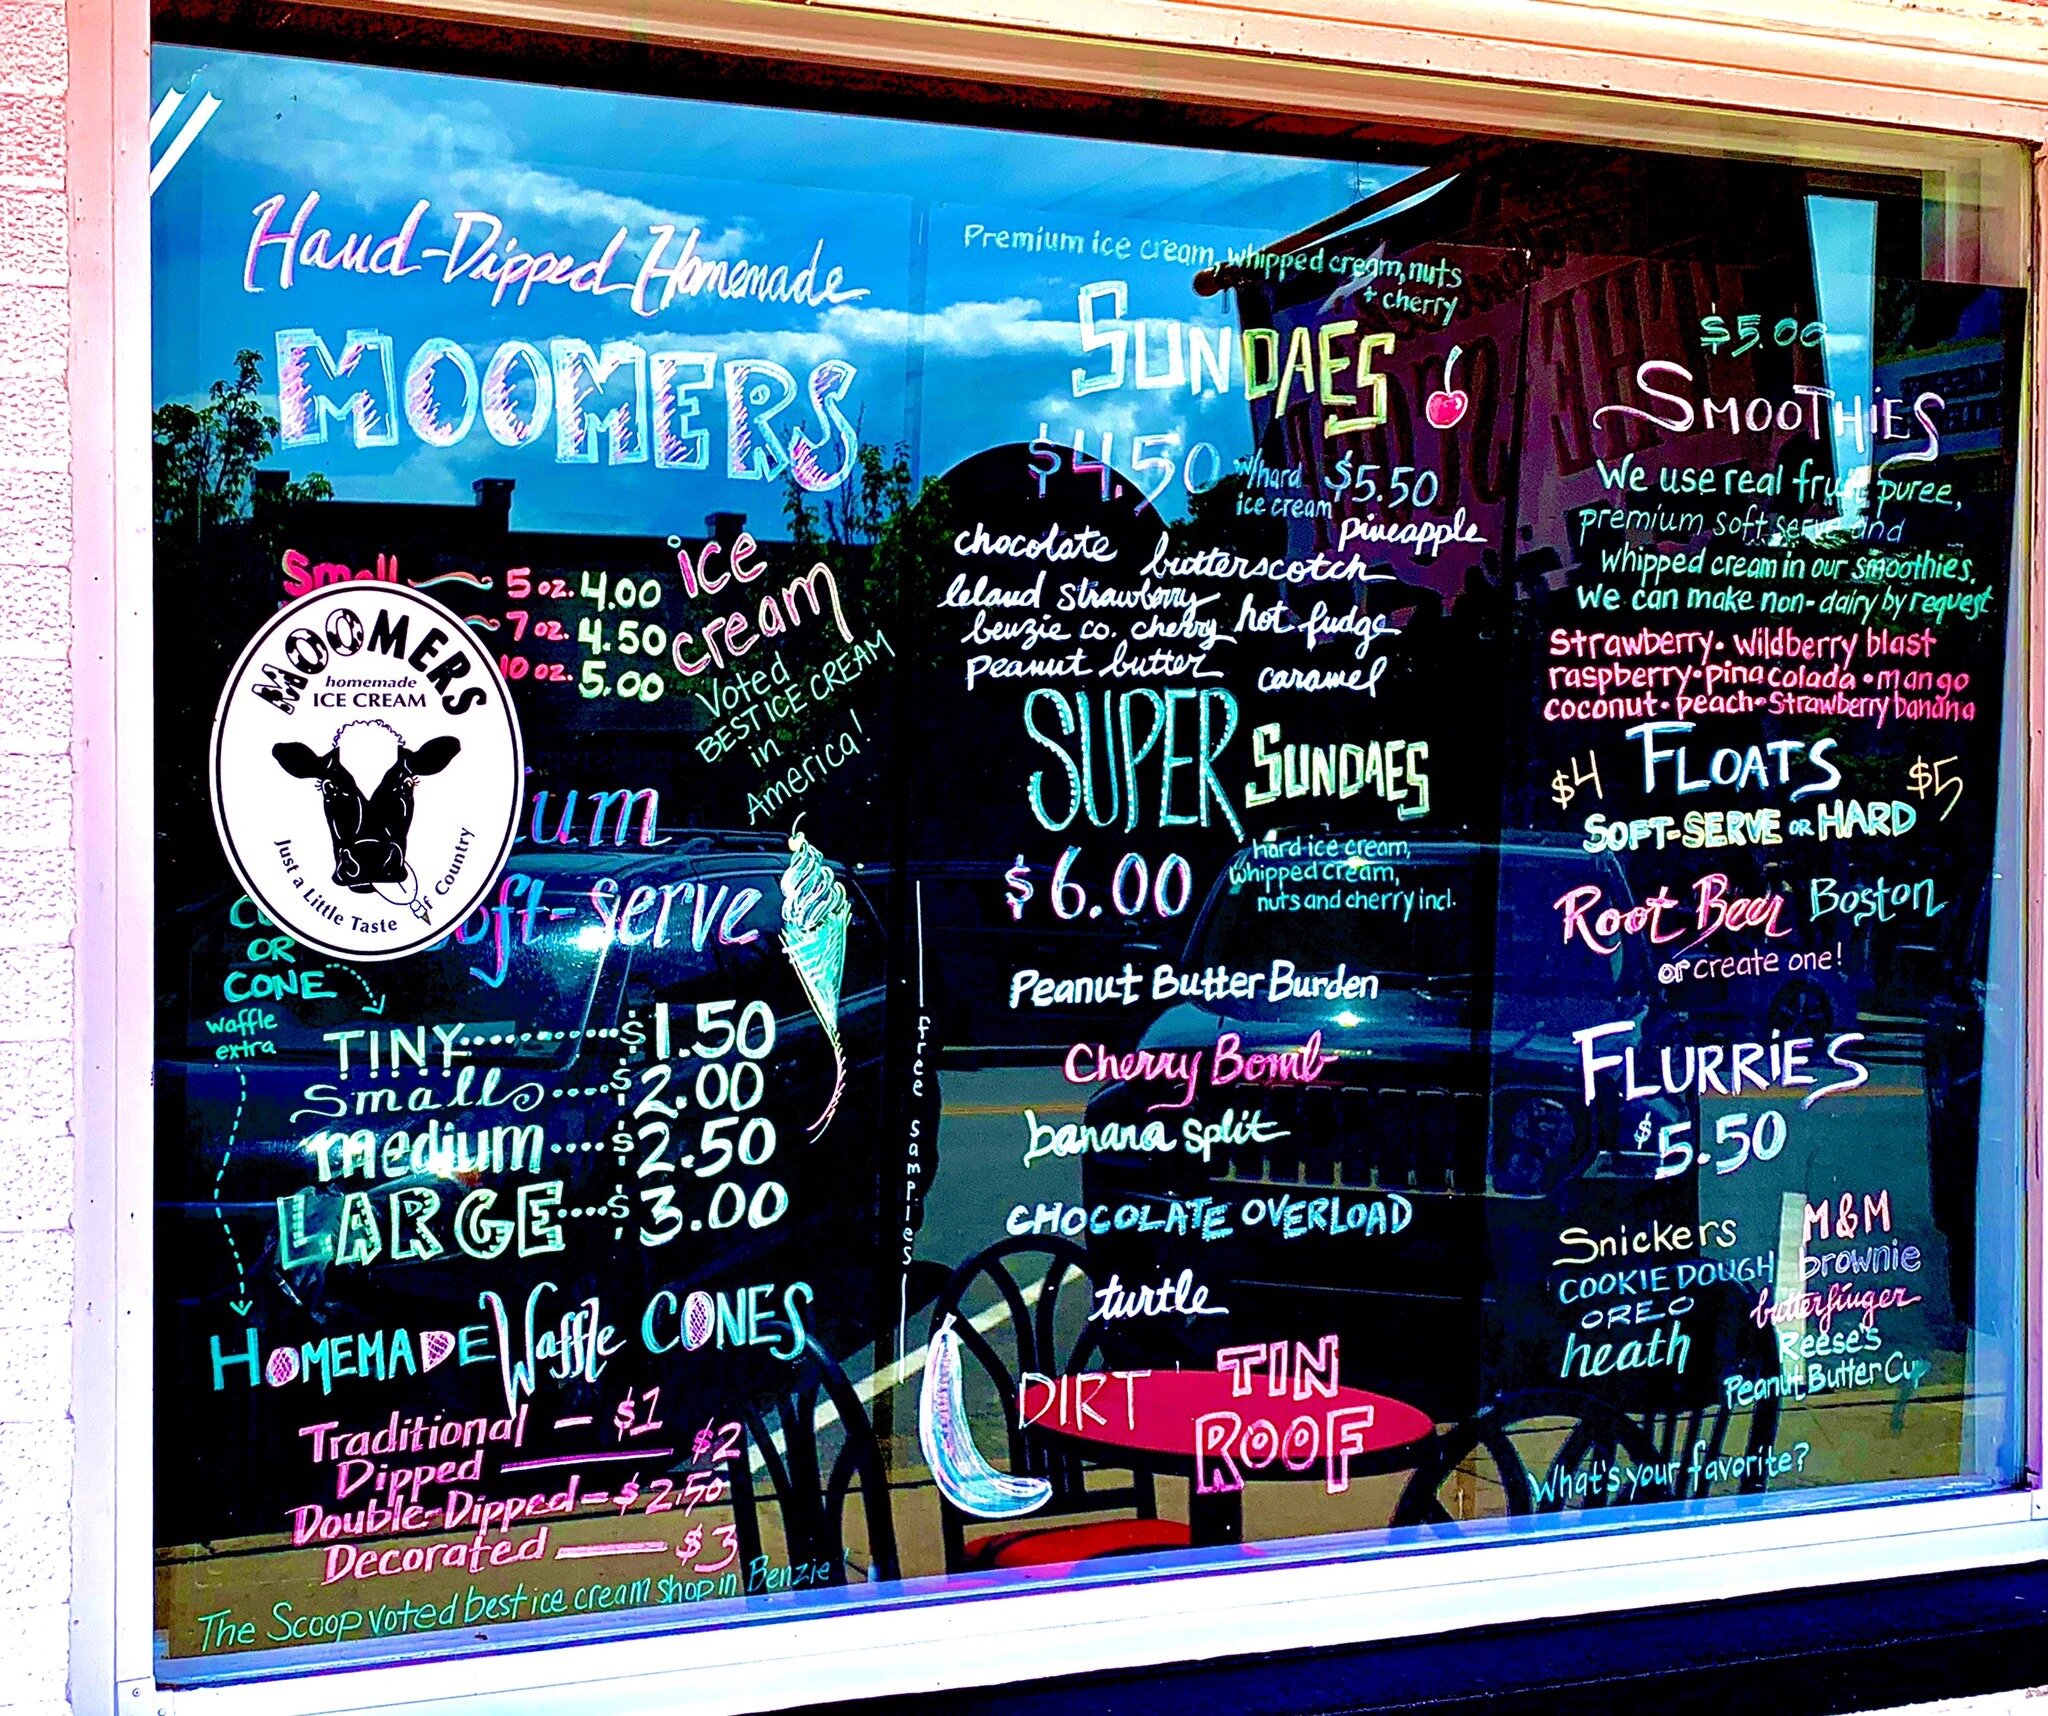 Hand-Dipped Homemade
MOOMERS
ice
cream
Small 5 oz. 4.00
7 oz. 4.50
10 oz. 5.00
Voted
BEST ICE CREAM
in
America!
MOOMERS
homemade
ICE CREAM
Just a Little Taste of Country
soft-serve
OR
CONE
waffle
extra
TINY........$1.50
Small....$2.00
medium....$2.50
LARGE....$3.00
HOMEMADE Waffle CONES
Traditional — $1
Dipped — $2
Double-Dipped – $2.50
Decorated — $3
The Scoop voted best ice cream shop in Benzie!
free samples
Premium ice cream, whipped cream, nuts
+ cherry
SUNDAES
$4.50 w/hard ice cream $5.50
pineapple
chocolate butterscotch
leland strawberry
benzie co. cherry hot fudge
peanut butter caramel
SUPER SUNDAES
$6.00
hard ice cream,
whipped cream,
nuts and cherry incl.
Peanut Butter Burden
Cherry Bomb
banana split
CHOCOLATE OVERLOAD
turtle
DIRT
TIN
ROOF
$5.00
SMOOTHIES
We use real fruit puree,
premium soft serve and
whipped cream in our smoothies.
We can make non-dairy by request
Strawberry • wildberry blast
raspberry • pina colada • mango
coconut • peach • Strawberry banana
$4 FLOATS $5
SOFT-SERVE OR HARD
Root Beer Boston
or create one!
FLURRIES
$5.50
Snickers M&M
COOKIE DOUGH brownie
OREO butterfinger
heath Reese's
Peanut Butter Cup
What's your favorite?